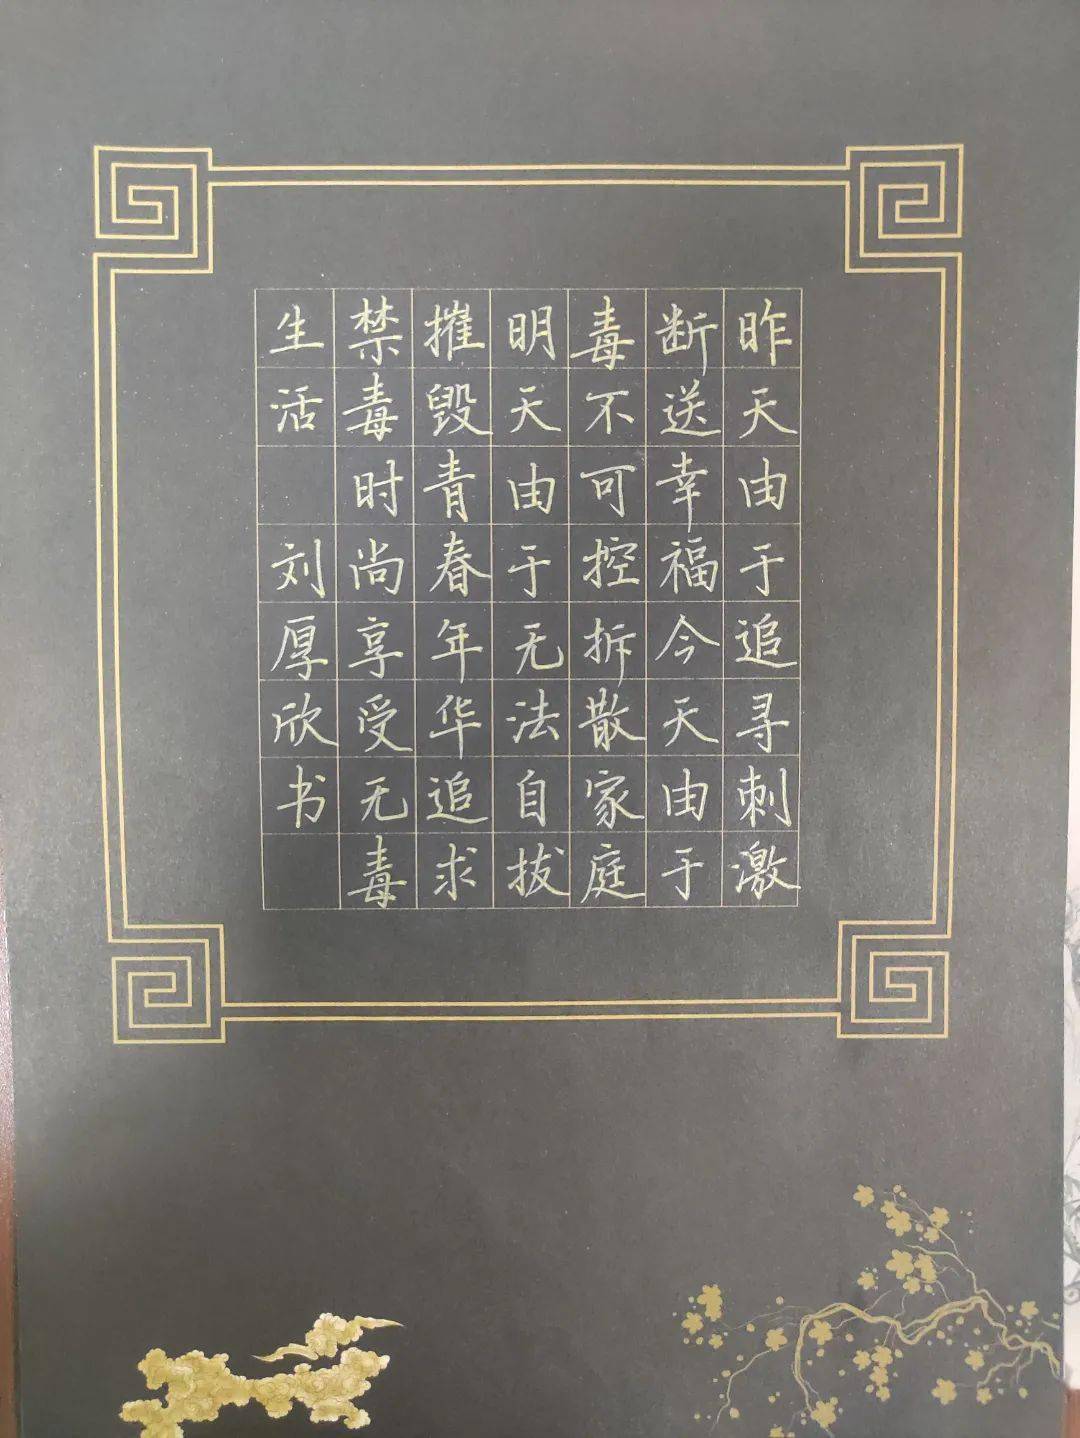 昨天由于追寻刺激
断送幸福今天由于
毒不可控拆散家庭
明天由于无法自拔
摧毁青春年华追求
禁毒时尚享受无毒
生活 刘厚欣书